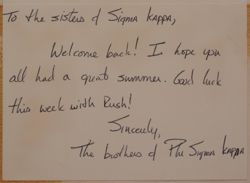 To the sisters of Sigma Kappa,
Welcome back! I hope you
all had a great summer. Good luck
this week with Rush!
Sincerely,
The brothers of Phi Sigma Kappa